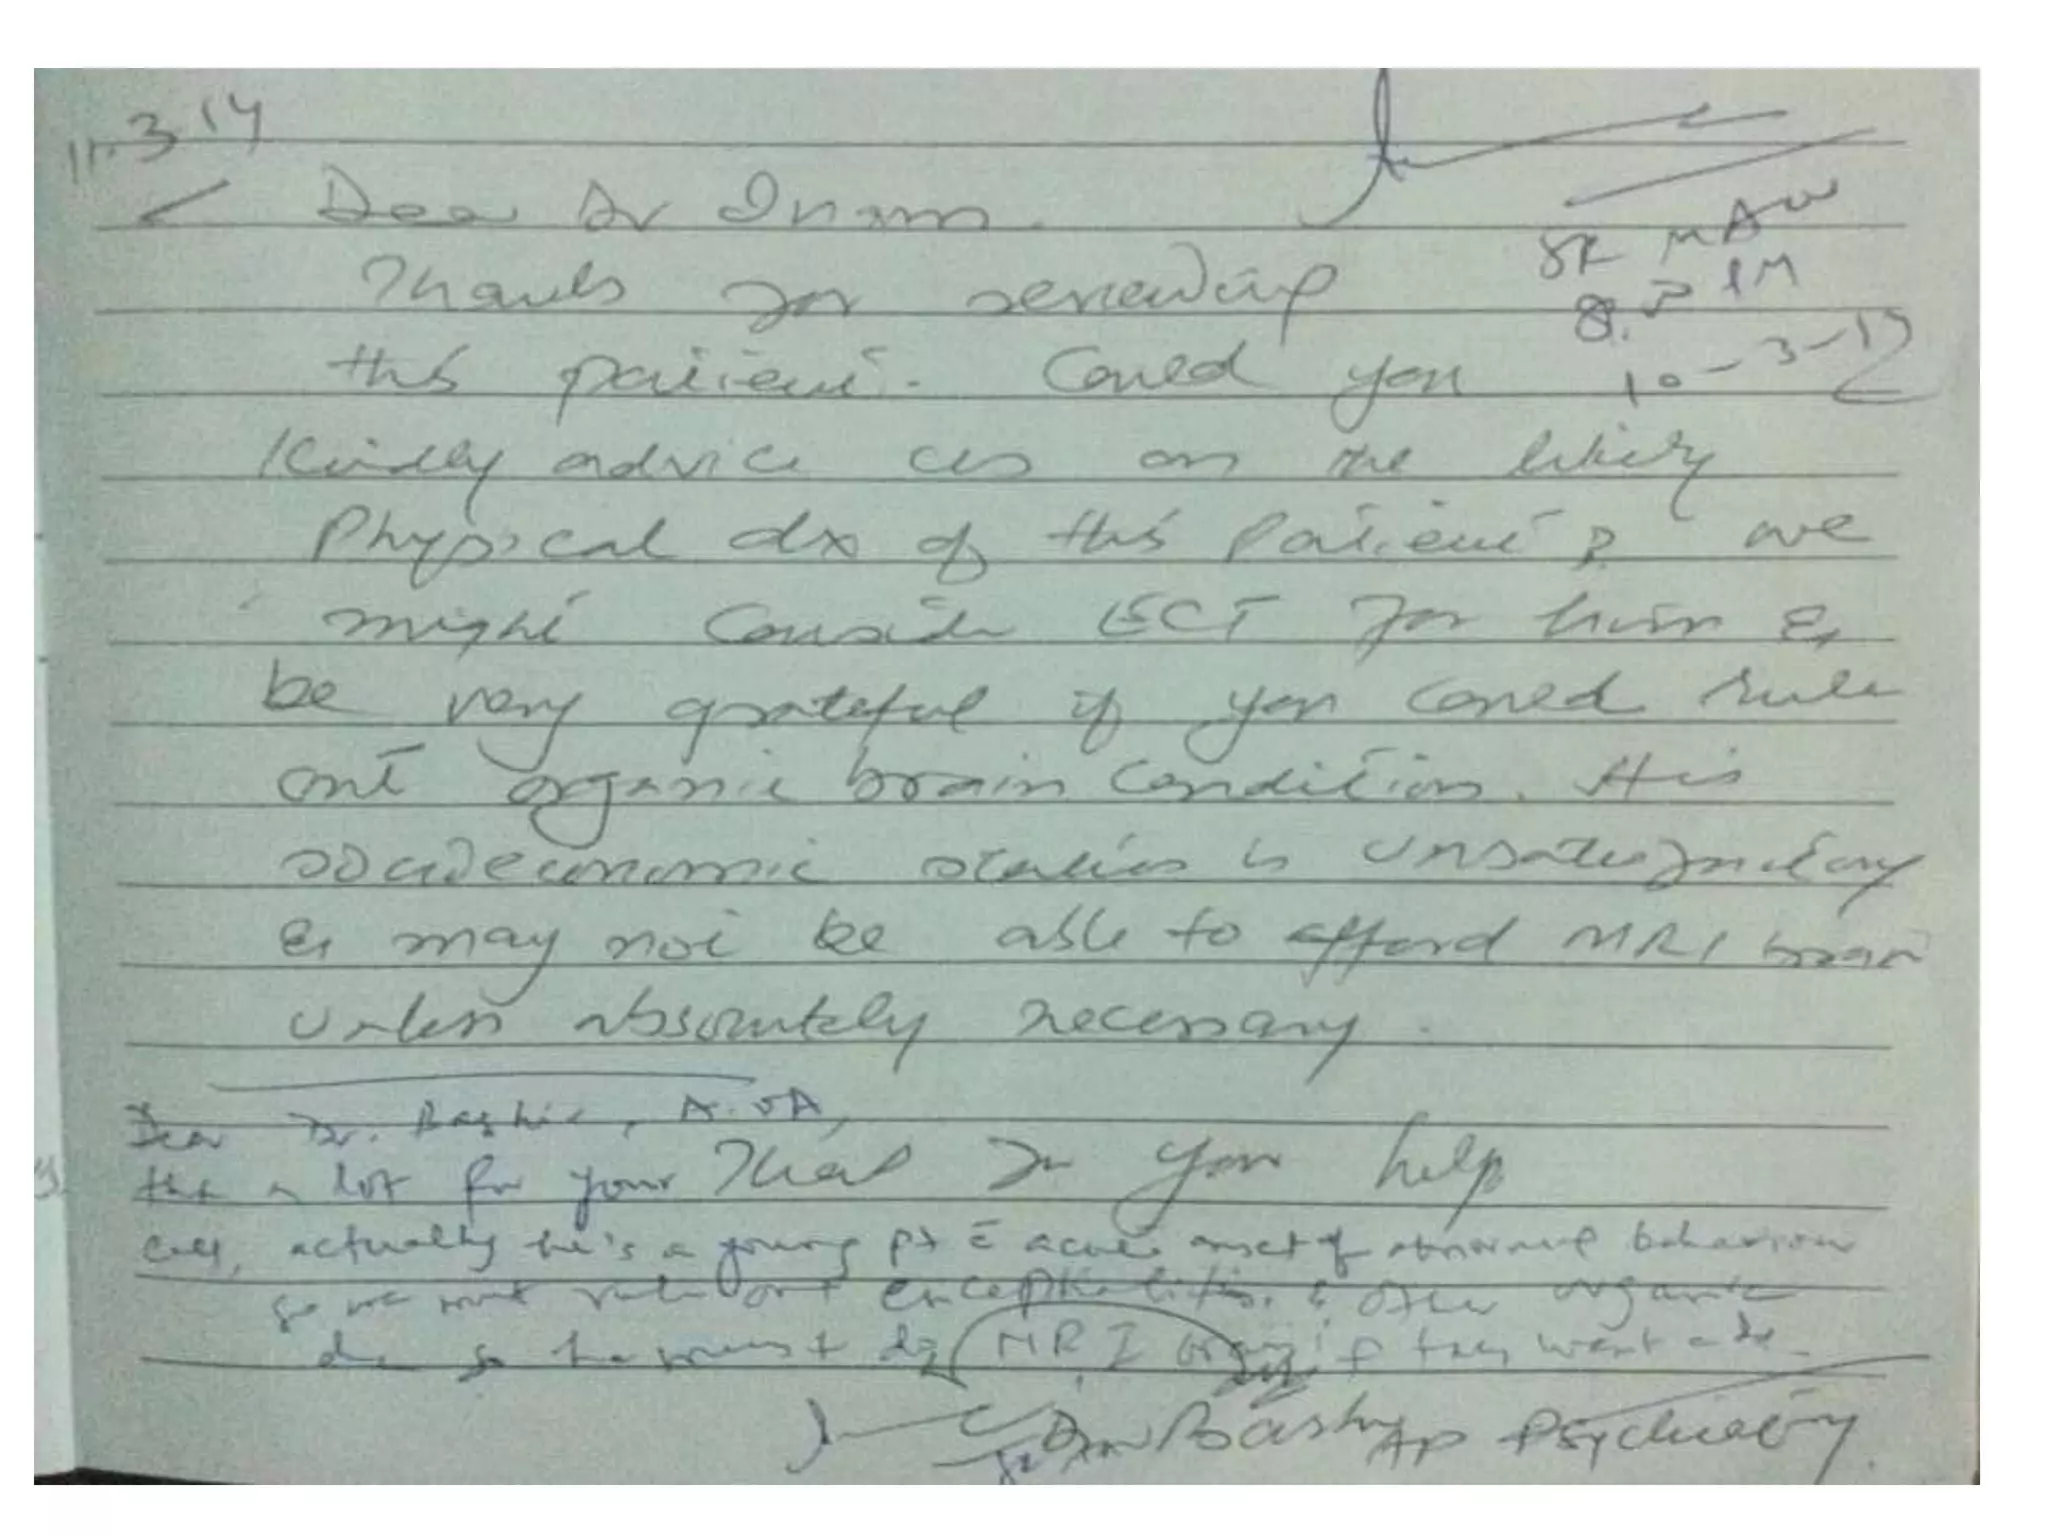 11.3.14
Dear Dr Inam.
SR MAW
Thanks for reviewing
this patient. Could you
10-3-15
Kindly advice us on the likely
Physical dx of this patient? we
might consider ECT for him &
be very grateful if you could rule
out organic brain condition. His
socioeconomic status is unsatisfactory
& may not be able to afford MRI brain
unless absolutely necessary.
Dear Dr. Bashir, A.O.A,
Thank for your help
a lot for your
call, actually he's a young pt c̄ acute onset of abnormal behaviour
so we must rule out encephalitis, & other organic
so he must MRI brain if they want
Bashir AP Psychiatry